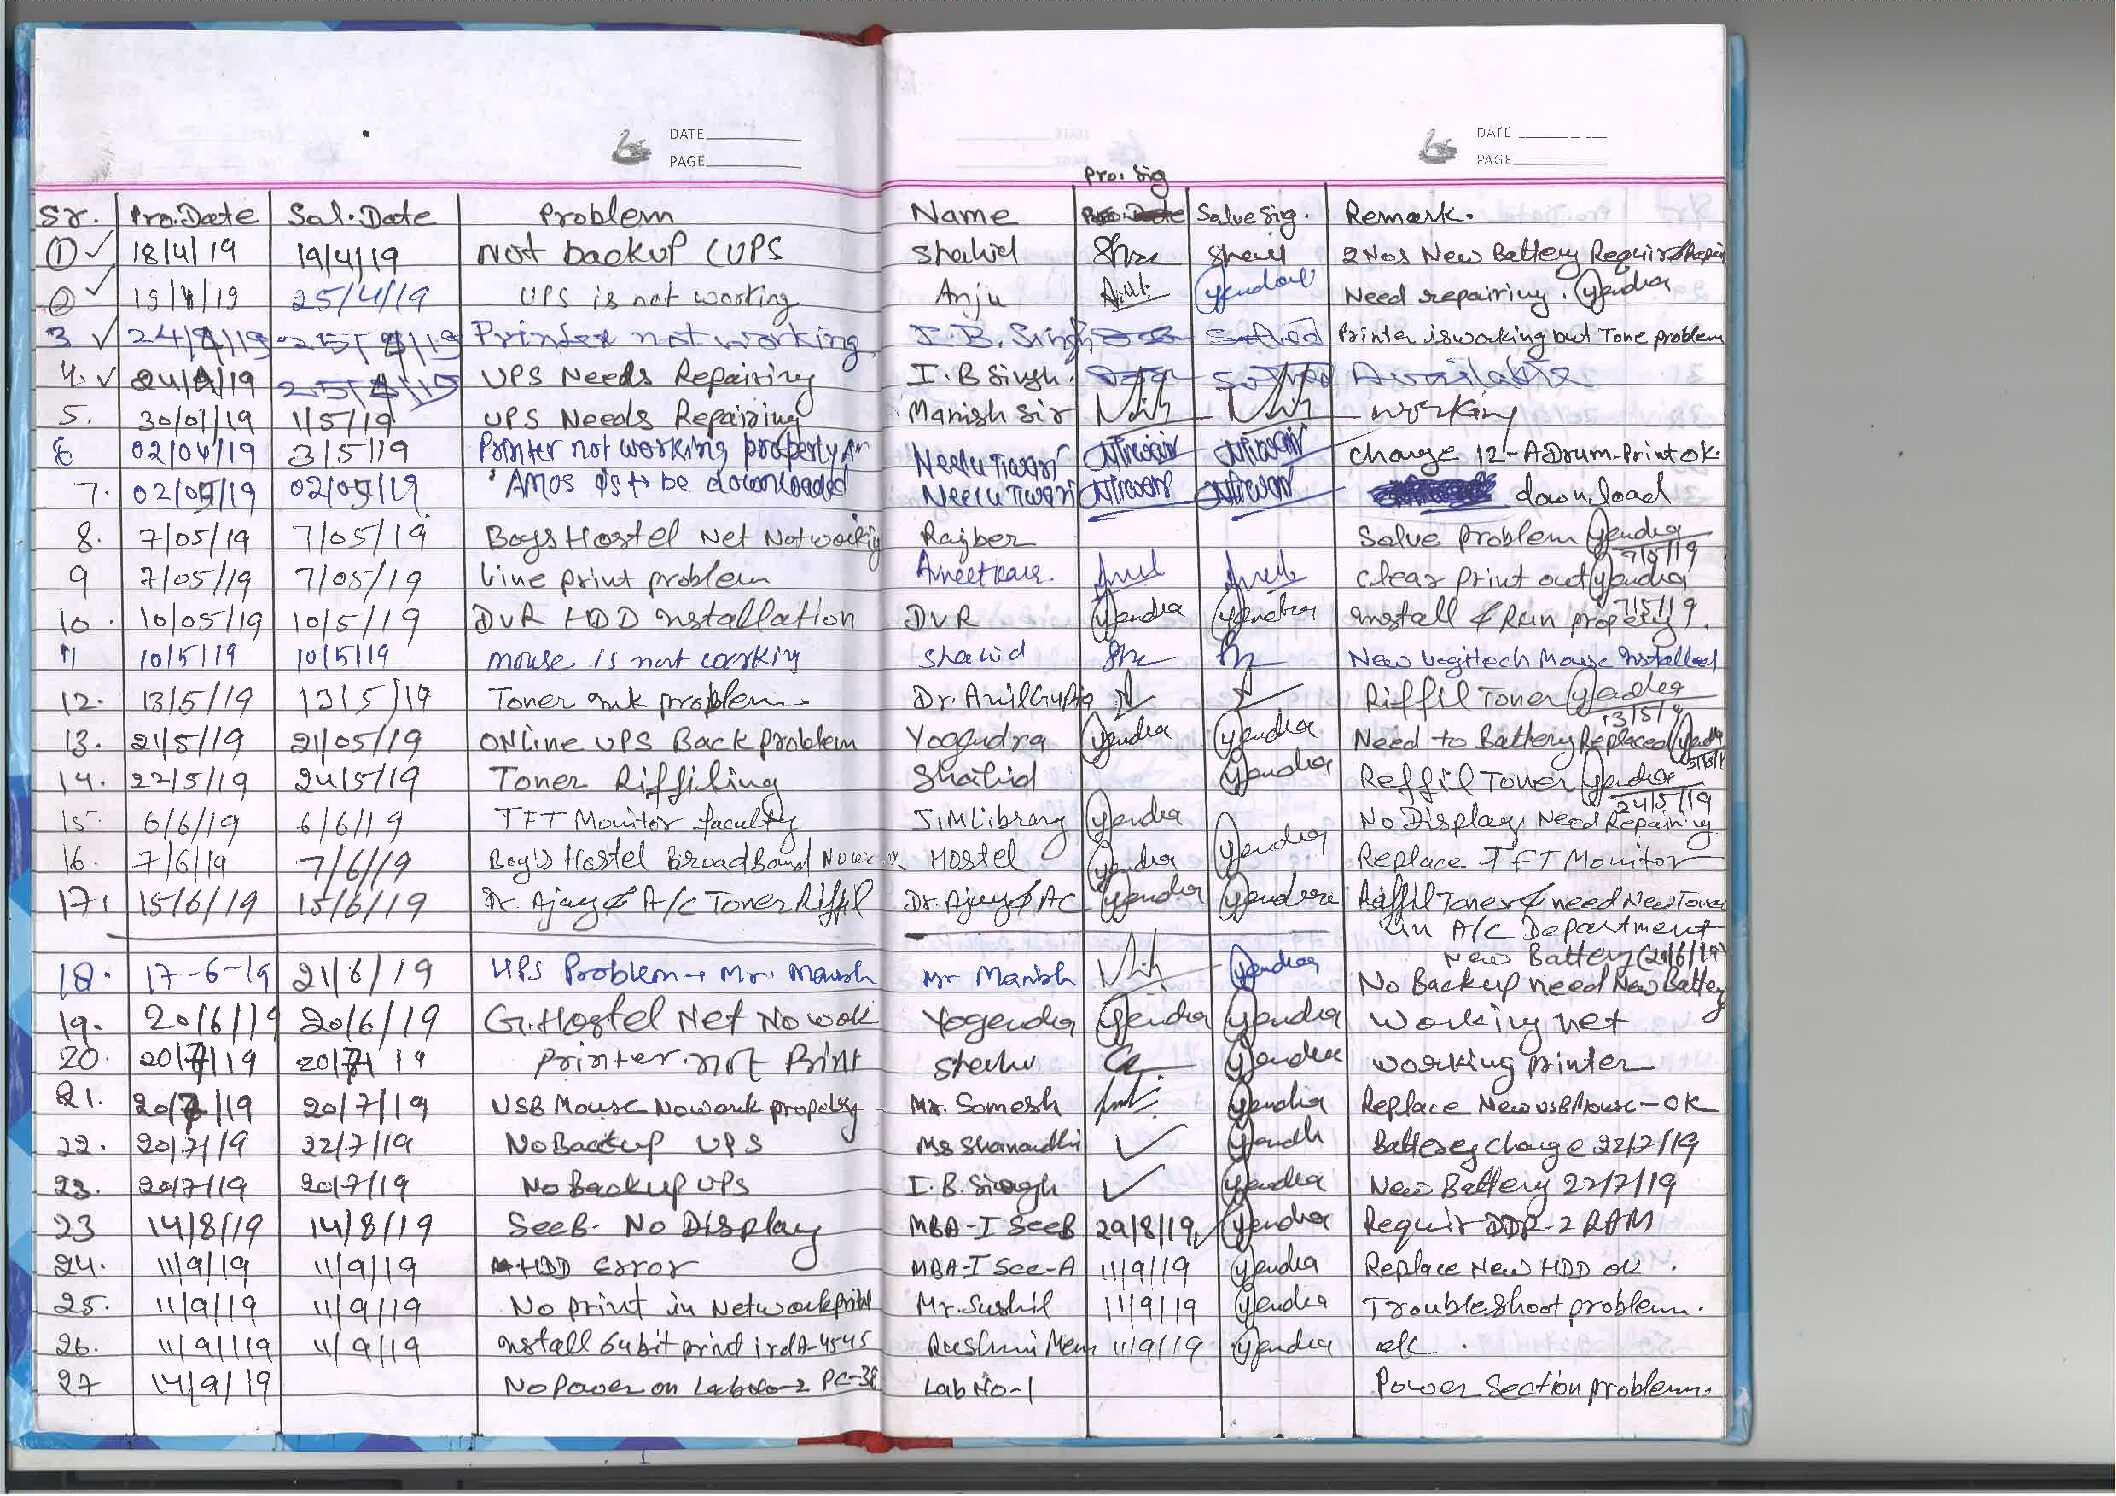 DATE
PAGE
DATE
PAGE
Pro. Sig
Sr. Pro.Date Sol.Date Problem Name Solve Sig. Remark.
① ✓ 18/4/19 19/4/19 Not backup (UPS Shahid 2 Nos New Battery Requir
② ✓ 19/4/19 25/4/19 UPS is not working Anju Yendra Need repairing. Yendra
3 ✓ 24/4/19 25/4/19 Printer not working I.B.Singh Solved Printer is working but Tone problem
4. ✓ 24/4/19 25/4/19 UPS Needs Repairing I.B Singh. Solved Available
5. 30/01/19 1/5/19 UPS Needs Repairing Manish Sir working
6 02/04/19 3/5/19 Printer not working property Neelu Tiwari NTiwari NTiwari change 12-A Drum-Print ok.
7. 02/05/19 02/05/19 AMOS is to be downloaded Neelu Tiwari NTiwari NTiwari download
8. 7/05/19 7/05/19 Boys Hostel Net Not workig Rajber Solve problem Yendra
7/5/19
9 7/05/19 7/05/19 line print problem Aneet Kaur. clear print out Yendra
7/5/19
10. 10/05/19 10/5/19 DVR HDD Installation DVR Yendra Yendra Install & Run property.
11 10/5/19 10/5/19 mouse is not workig Shahid New Logitech Mouse Installed
12. 13/5/19 13/5/19 Toner ink problem. Dr. Anil Gupta Riffil Toner Yendra
13/5/19
13. 21/5/19 21/05/19 ONLine UPS Back problem Yogendra Yendra Yendra Need to Battery Replaced
14. 22/5/19 24/5/19 Toner Riffiling Shahid Yendra Reffil Toner Yendra
24/5/19
15. 6/6/19 6/6/19 TFT Monitor faculty JIM Library Yendra No Display Need Repairing
16. 7/6/19 7/6/19 Boy's Hostel BroadBand Hostel Yendra Yendra Replace TFT Monitor
17. 15/6/19 15/6/19 Dr. Ajay & A/c Toner Riffil Dr. Ajay & AC Yendra Yendra Riffil Toner & need New Toner
in A/c Department
New Battery (21/6/19)
18. 17-6-19 21/6/19 UPS Problem → Mr. Manish Mr Manish Yendra No Backup need New Battery
19. 20/6/19 20/6/19 G.Hostel Net No wok Yogendra Yendra Yendra Working net
20. 20/7/19 20/7/19 printer not Print Yendra working printer
21. 20/7/19 20/7/19 USB Mouse Nowork propelry Mr. Somesh Yendra Replace New USB Mouse - OK
22. 20/7/19 22/7/19 No Backup UPS Ms ✓ Yendra Battery change 22/7/19
23. 20/7/19 20/7/19 No Backup UPS I.B.Singh ✓ Yendra New Battery 22/7/19
23 14/8/19 14/8/19 SecB. No Display MBA-I SecB 29/8/19 Yendra Requir DDR-2 RAM
24. 11/9/19 11/9/19 HDD Error MBA-I Sec-A 11/9/19 Yendra Replace New HDD ok.
25. 11/9/19 11/9/19 No print in Network Mr. Sushil 11/9/19 Yendra Troubleshoot problem.
26. 11/9/19 11/9/19 Install 64bit print 11/9/19 Yendra ok.
27 14/9/19 No Power on Lab No-2 PC-38 Lab No-1 Power Section problem.